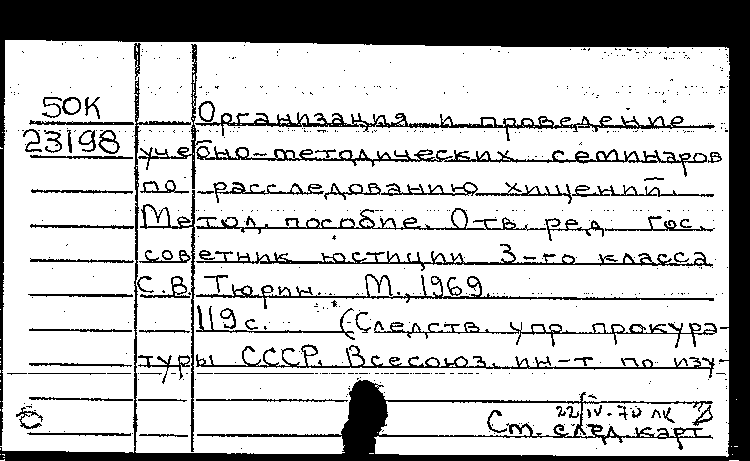 50К
23198
Организация и проведение
учебно-методических семинаров
по расследованию хищений.
Метод. пособие. Отв. ред. гос.
советник юстиции 3-го класса
С.В. Тюрин. М., 1969.
119 с. (Следств. упр. прокура-
туры СССР. Всесоюз. ин-т по изу-
22/IV-70 лк
Ст. след карт